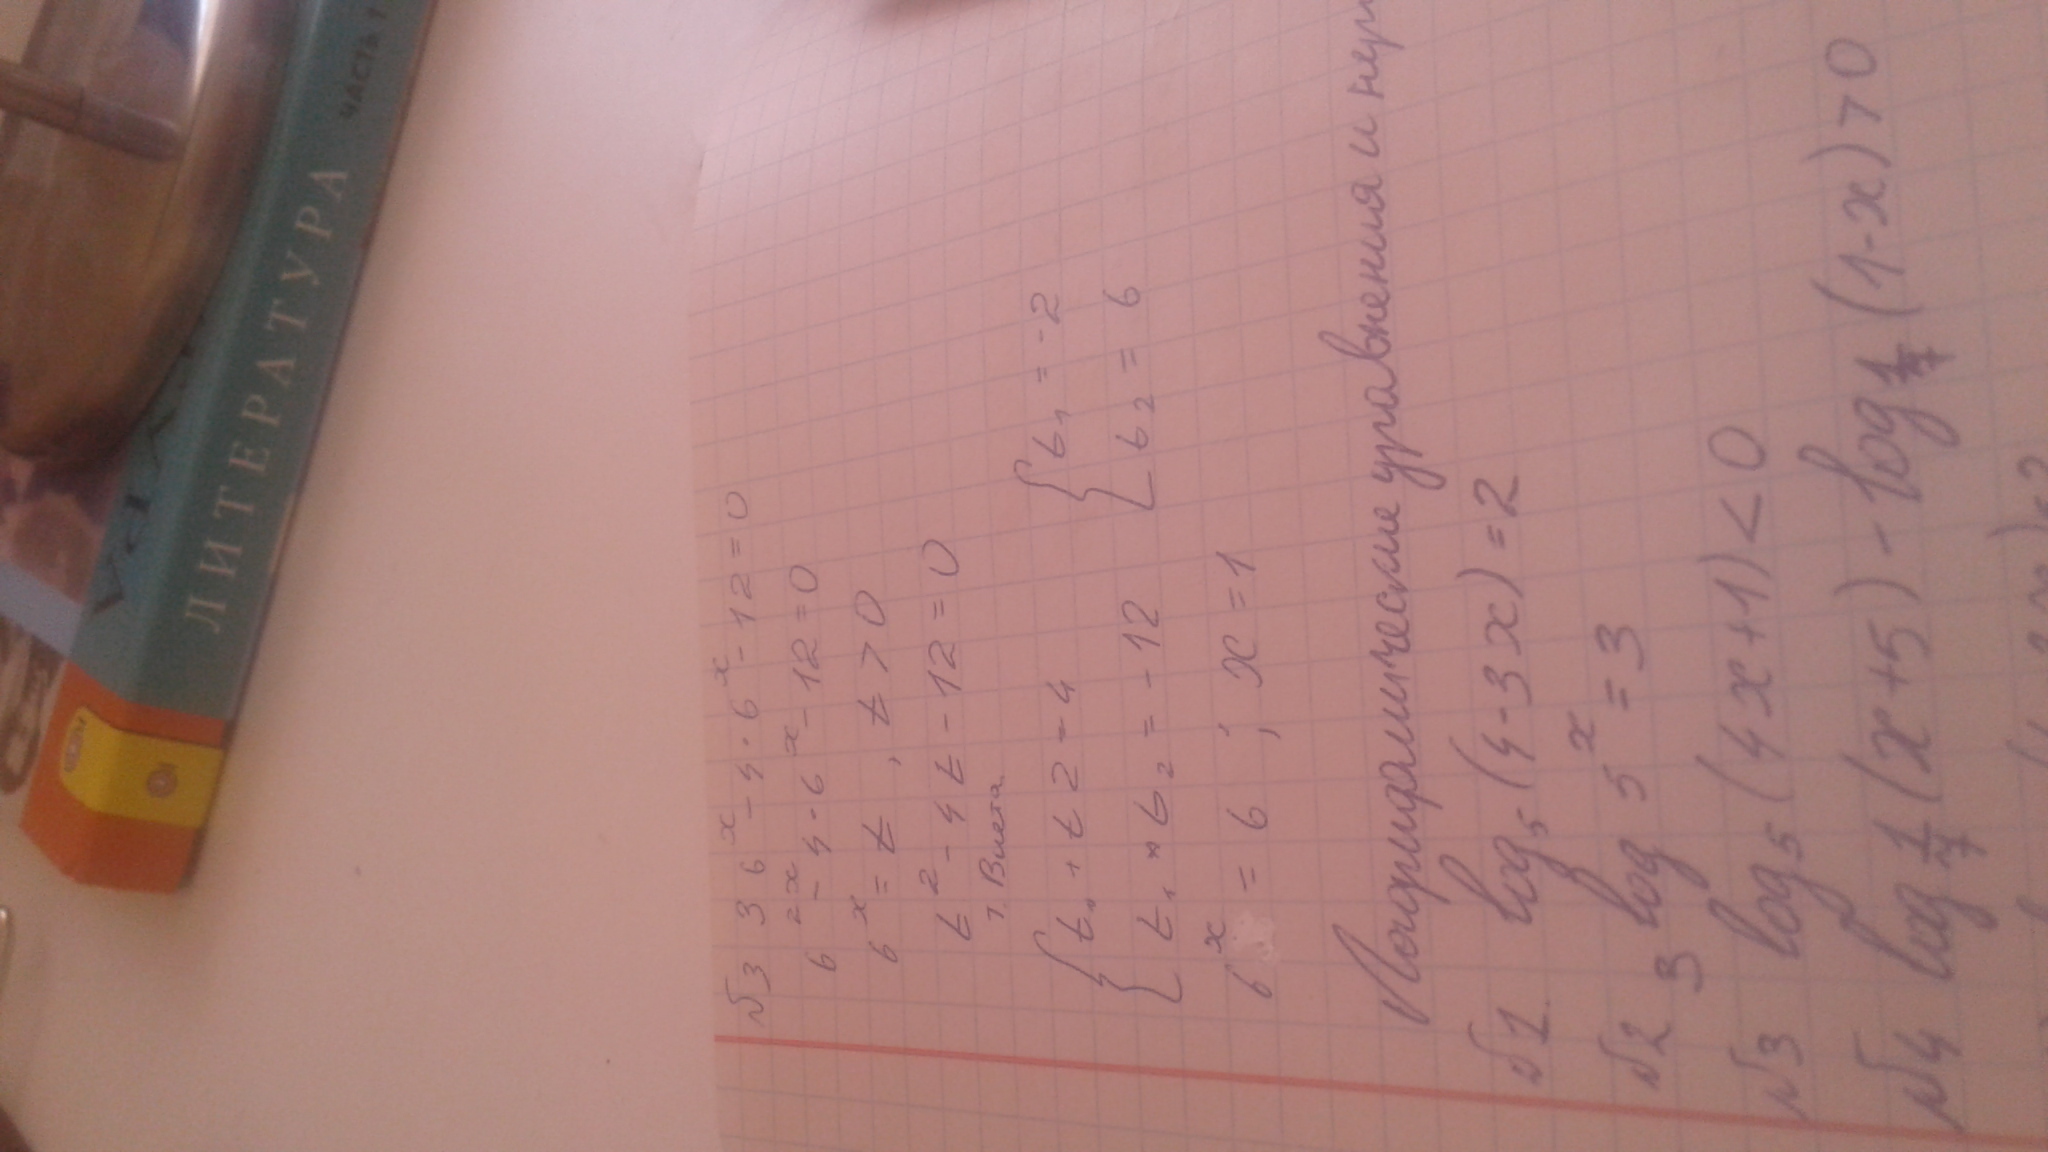 ЛИТЕРАТУРА ЧАСТЬ 1
№3 36^x - 4·6^x - 12 = 0
6^2x - 4·6^x - 12 = 0
6^x = t, t > 0
t^2 - 4t - 12 = 0
т. Виета
{ t₁ + t2 - 4 { t₁ = -2
{ t₁ * t₂ = -12 { t₂ = 6
6^x = 6 ; x = 1
Логарифмические уравнения и
№1. log₅(4-3x) = 2
№2 3 log 5^x = 3
№3 log₅(4x+1) < 0
№4 log 1/7 (x+5) - log 1/7 (1-x) > 0